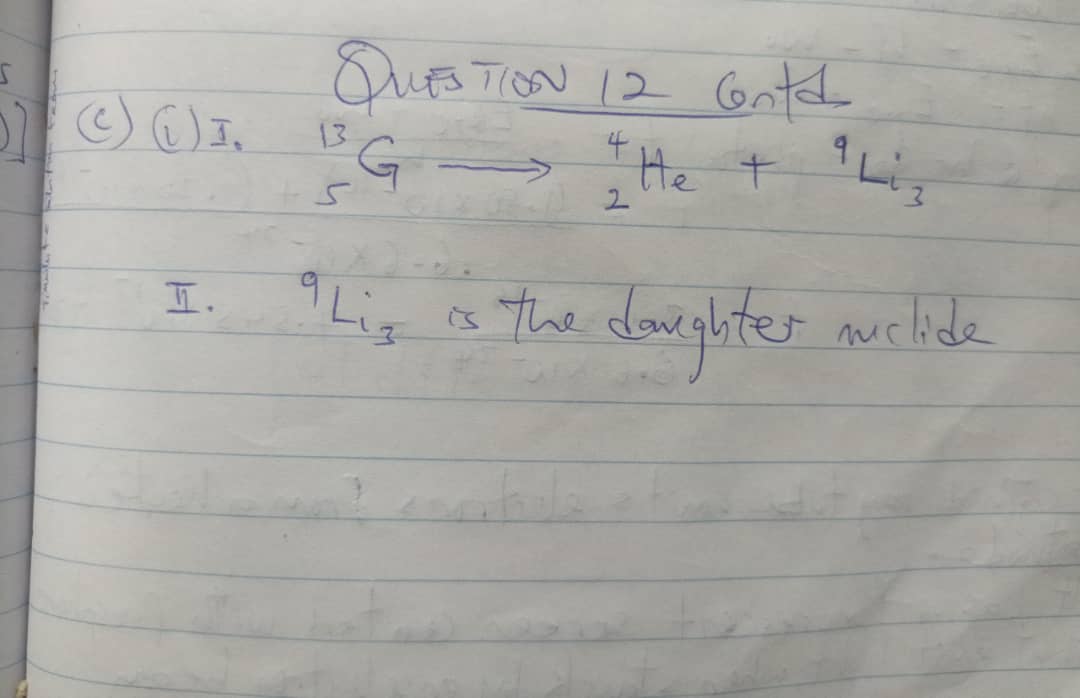 QUESTION 12 Contd
(c) (i) I. ¹³₅G → ⁴₂He + ⁹Li₃
II. ⁹Li₃ is the daughter nuclide